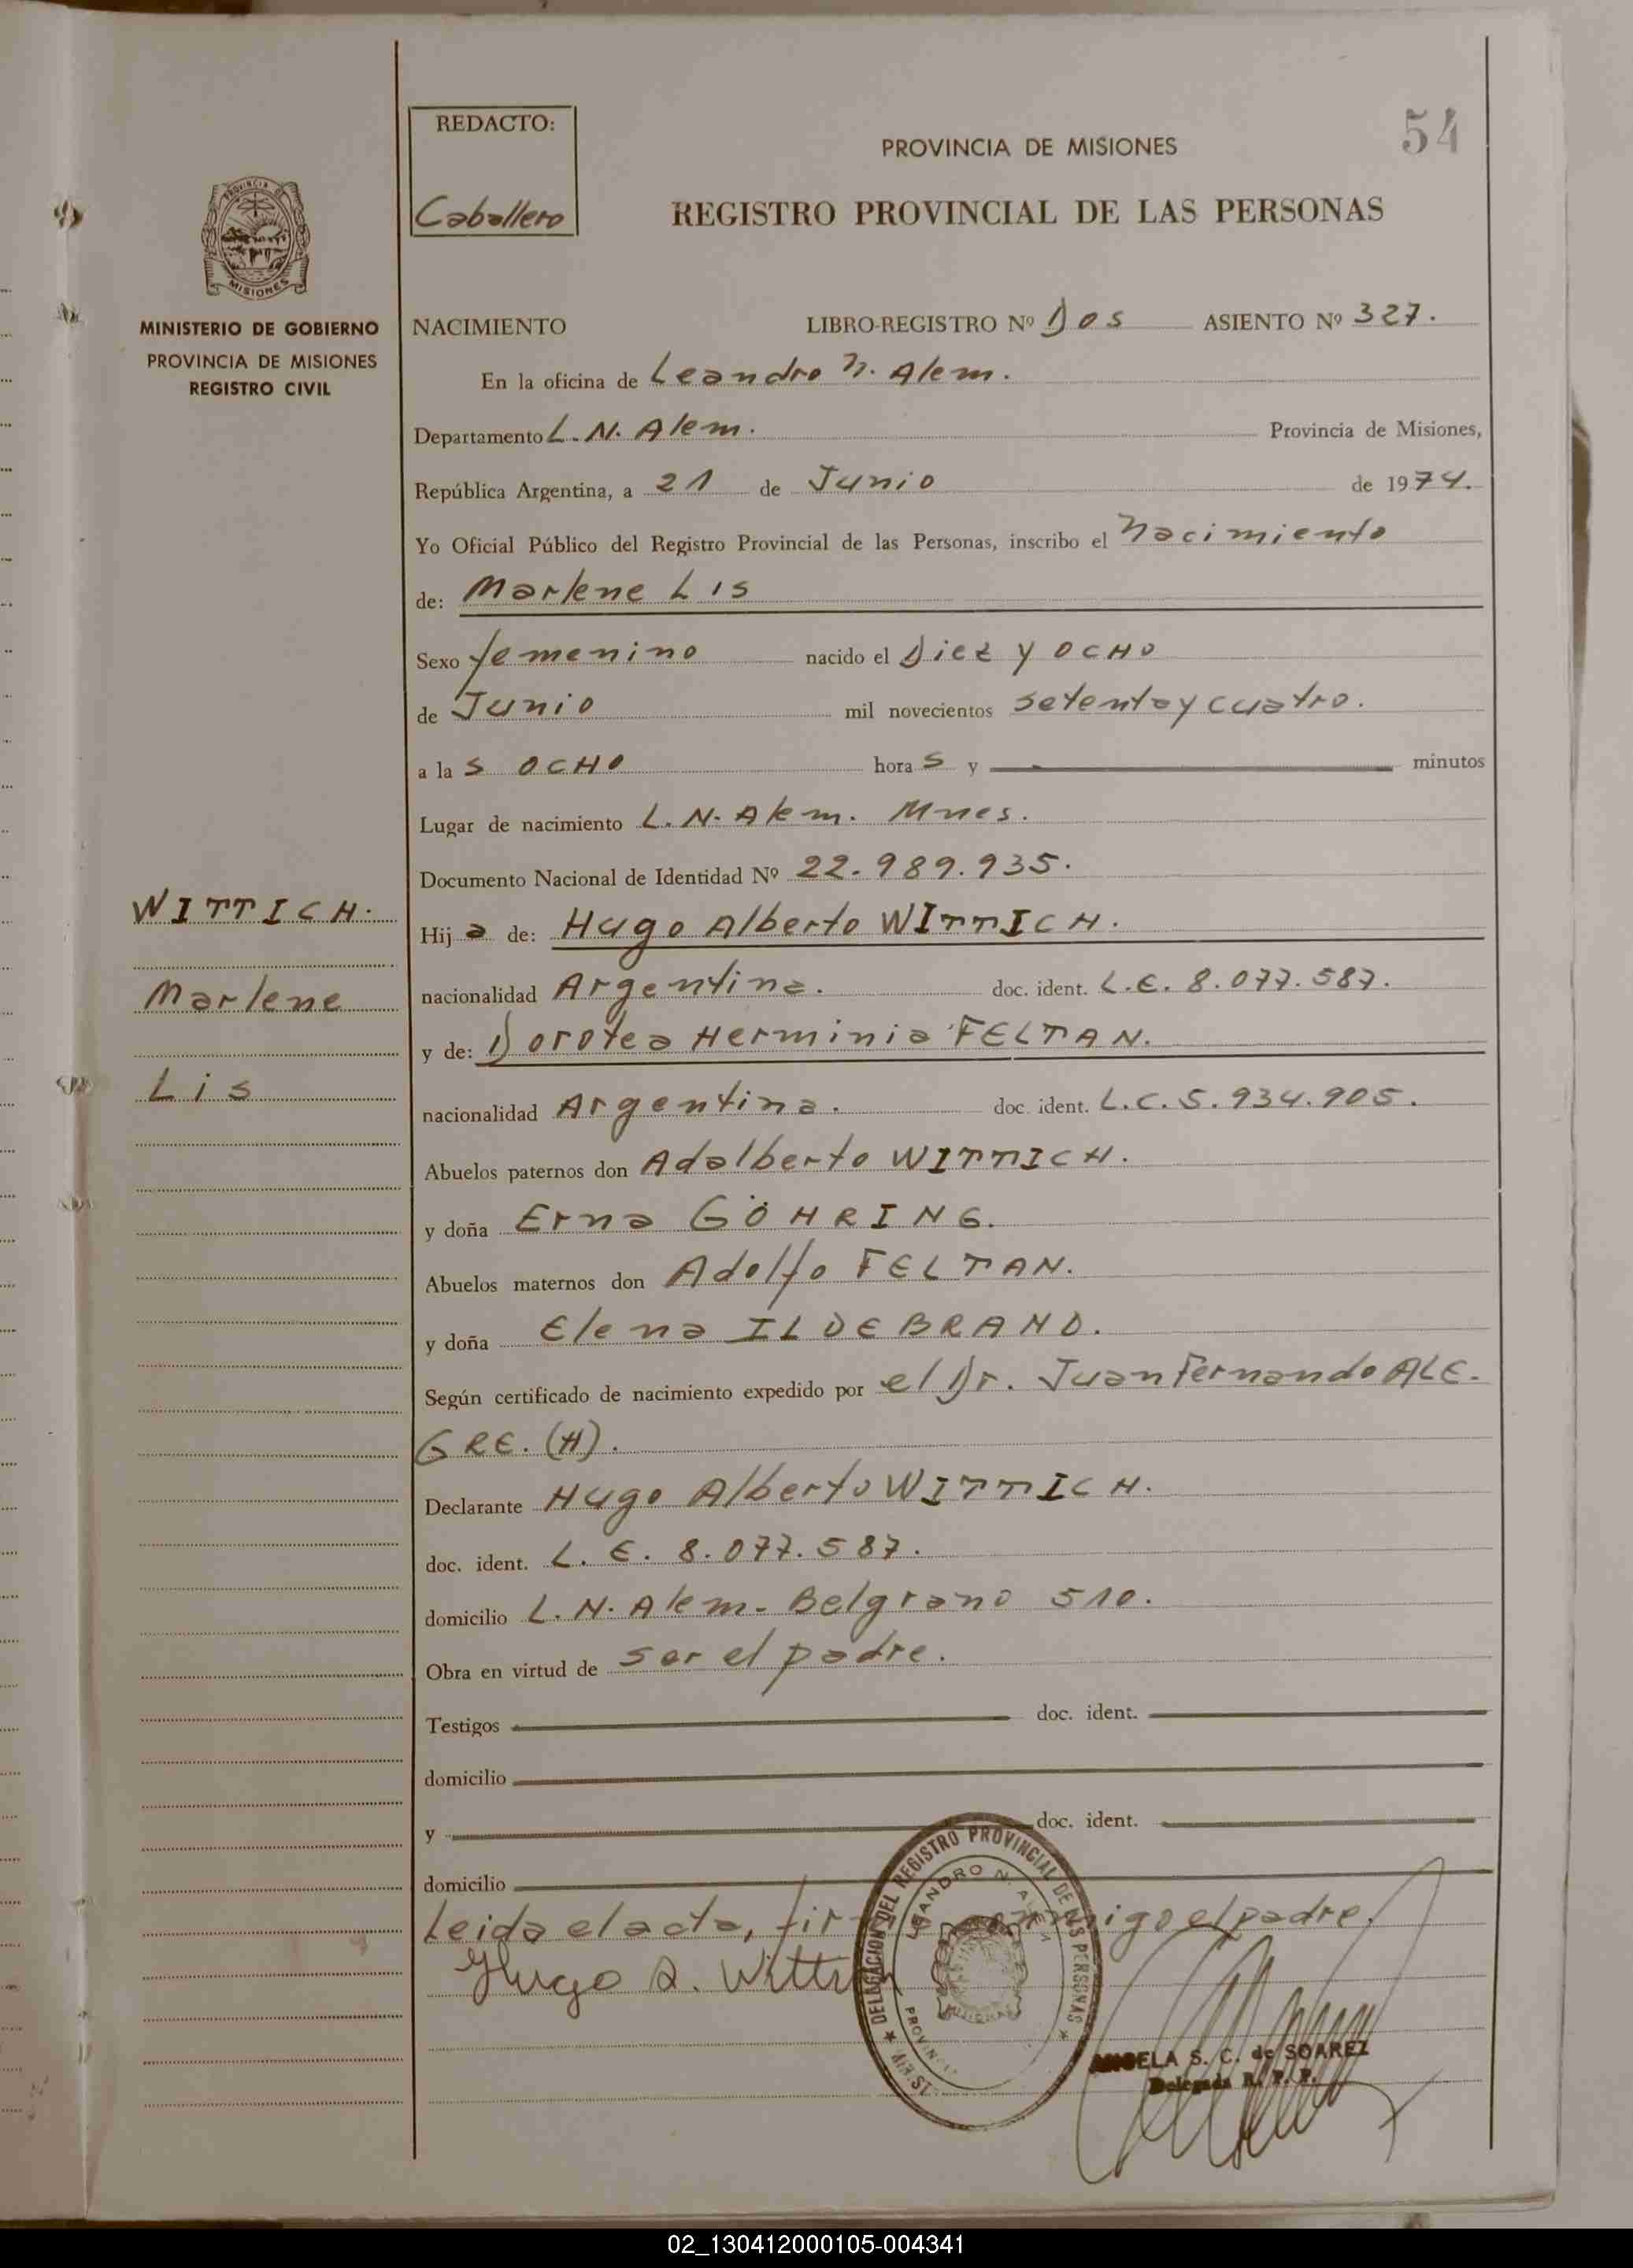 REDACTO:
Caballero
54
PROVINCIA DE MISIONES
REGISTRO PROVINCIAL DE LAS PERSONAS
PROVINCIA DE
MISIONES
MINISTERIO DE GOBIERNO
PROVINCIA DE MISIONES
REGISTRO CIVIL
NACIMIENTO LIBRO-REGISTRO Nº Dos ASIENTO Nº 327.
En la oficina de Leandro N. Alem.
Departamento L. N. Alem. Provincia de Misiones,
República Argentina, a 21 de Junio de 1974.
Yo Oficial Público del Registro Provincial de las Personas, inscribo el Nacimiento
de: Marlene Lis
Sexo femenino nacido el Diez y OCHO
de Junio mil novecientos setenta y cuatro.
a la s OCHO hora s y minutos
Lugar de nacimiento L. N. Alem. Mnes.
Documento Nacional de Identidad Nº 22.989.935.
WITTICH.
Marlene
Lis
Hij a de: Hugo Alberto WITTICH.
nacionalidad Argentina. doc. ident. L.E. 8.077.587.
y de: Dorotea Herminia FELTAN.
nacionalidad Argentina. doc. ident. L.C. 5.934.905.
Abuelos paternos don Adalberto WITTICH.
y doña Erna GÖHRING.
Abuelos maternos don Adolfo FELTAN.
y doña Elena ILDEBRAND.
Según certificado de nacimiento expedido por el Dr. Juan Fernando ALE-
GRE. (H).
Declarante Hugo Alberto WITTICH.
doc. ident. L. E. 8.077.587.
domicilio L. N. Alem - Belgrano 510.
Obra en virtud de ser el padre.
Testigos doc. ident.
domicilio
y doc. ident.
domicilio
Leida el acta, fir migo el padre.
Hugo A. Witti
★ DELEGACION DEL REGISTRO PROVINCIAL DE LAS PERSONAS ★
LEANDRO N. ALEM
ANGELA S. C. de SOAREZ
Delegada R. P. P.
02_130412000105-004341